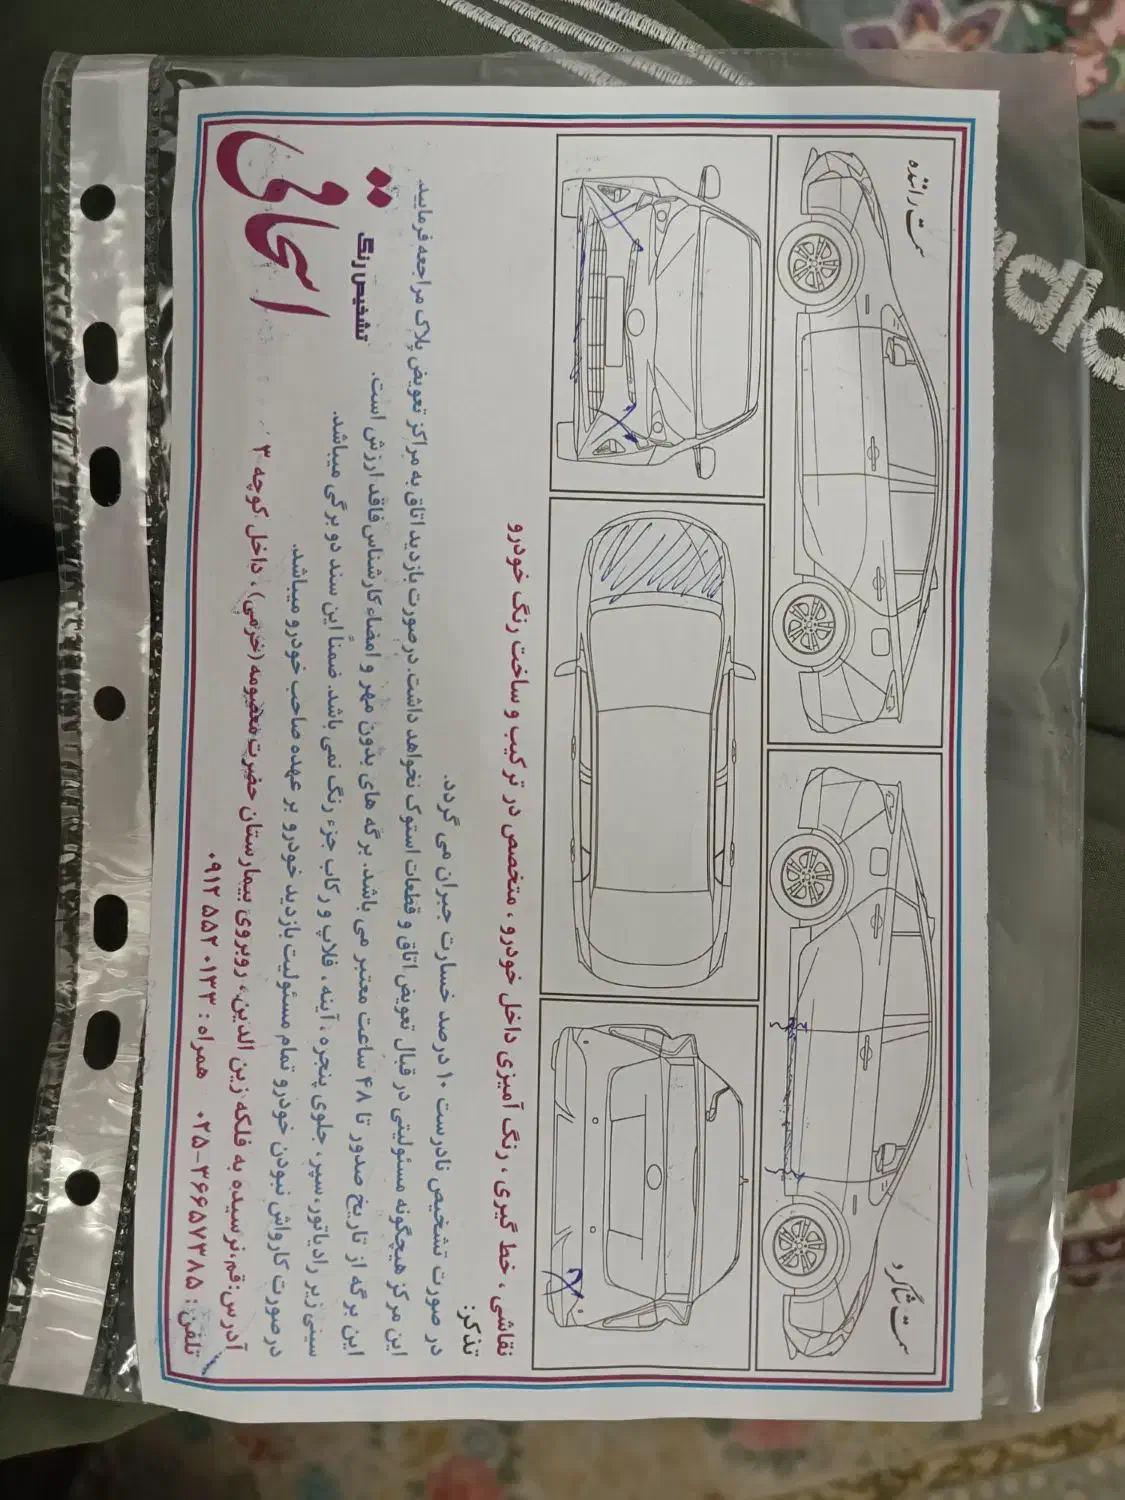 سمت راننده
سمت شاگرد
نقاشی، خط گیری، رنگ آمیزی داخل خودرو، متخصص در ترکیب و ساخت رنگ خودرو
تذکر:
در صورت تشخیص نادرست ۱۰ درصد خسارت جبران می گردد.
این مرکز هیچگونه مسئولیتی در قبال تعویض اتاق و قطعات استوک نخواهد داشت. در صورت بازدید اتاق به مراکز تعویض پلاک مراجعه فرمایید.
این برگه از تاریخ صدور تا ۴۸ ساعت معتبر می باشد. برگه های بدون مهر و امضاء کارشناس فاقد ارزش است.
سینی زیر رادیاتور، سپر، جلوی پنجره، آینه، فلاپ و رکاب جزء رنگ نمی باشد. ضمناً این سند دو برگی میباشد.
در صورت کارواش نبودن خودرو تمام مسئولیت بازدید خودرو بر عهده صاحب خودرو میباشد.
تشخیص رنگ
اسحاقی
آدرس: قم، نرسیده به فلکه زین الدین، روبروی بیمارستان حضرت معصومه (خرمی)، داخل کوچه ۳
تلفن: ۳۶۶۵۷۳۸۵-۰۲۵ همراه: ۰۹۱۲ ۵۵۲ ۰۱۳۳